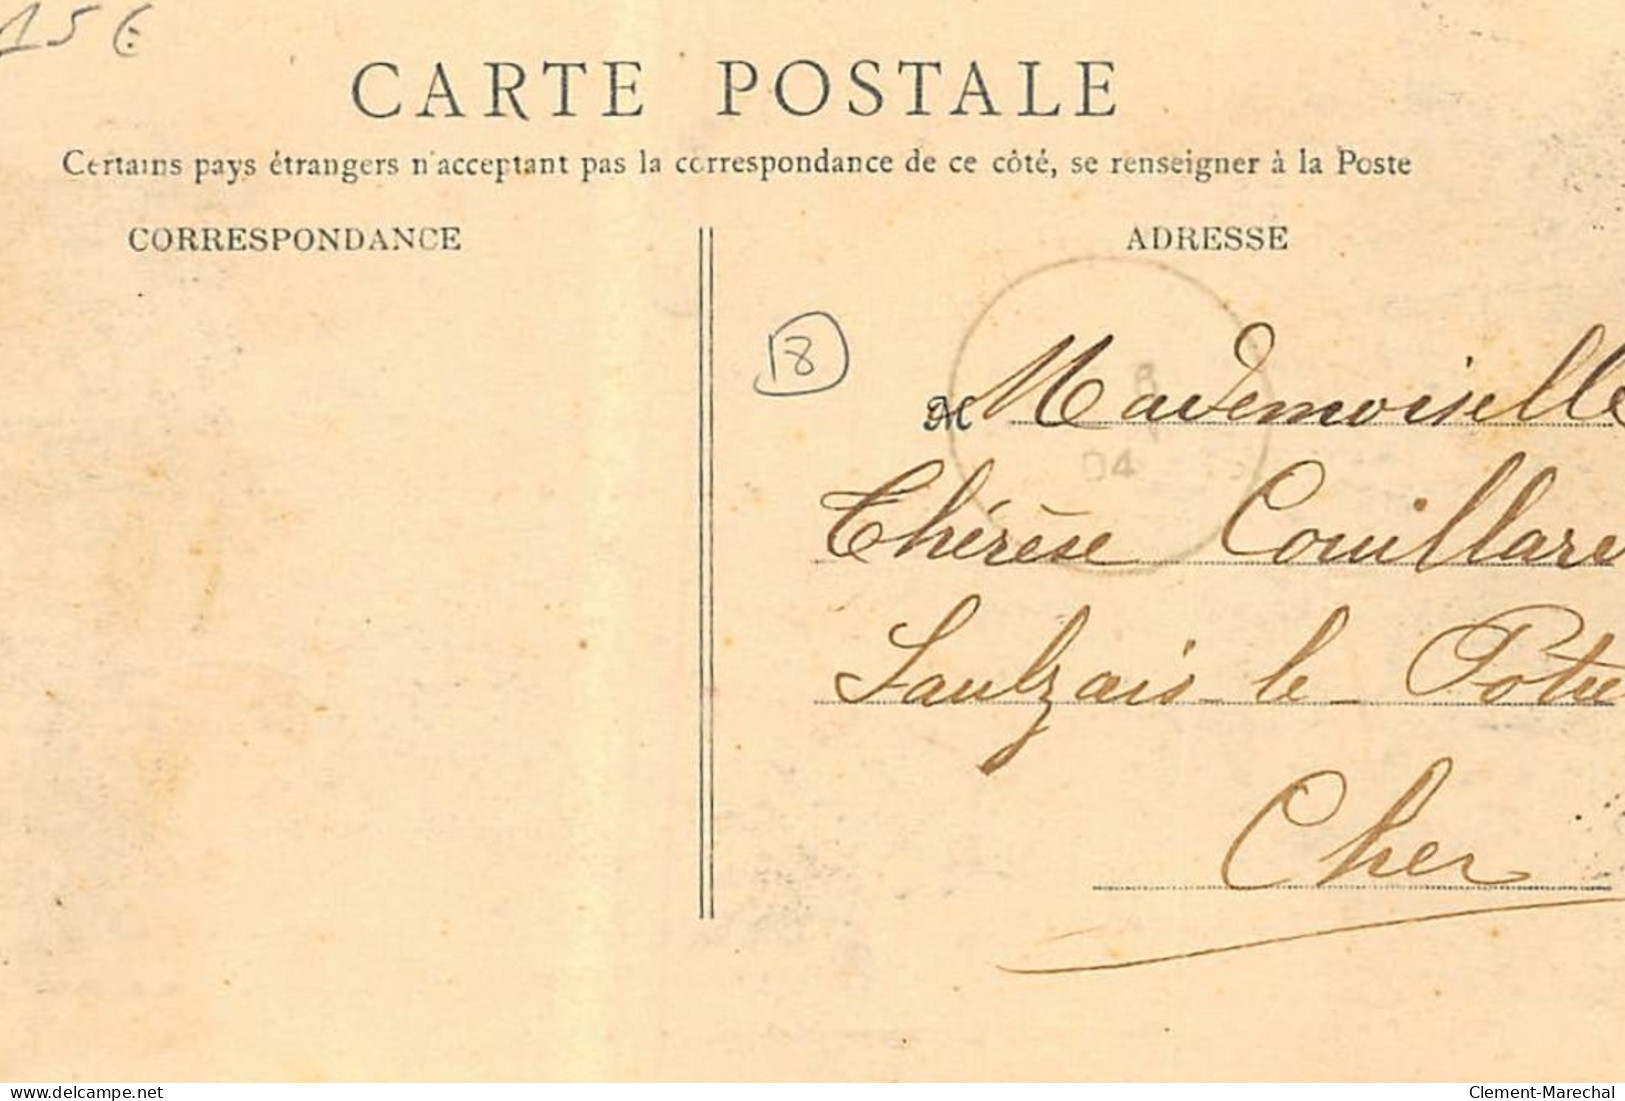 15 €
CARTE POSTALE
Certains pays étrangers n'acceptant pas la correspondance de ce côté, se renseigner à la Poste
CORRESPONDANCE
ADRESSE
18
M Mademoiselle
04
Thérèse Couillard
Saulzais-le-Potie
Cher
www.delcampe.net
Clement-Marechal